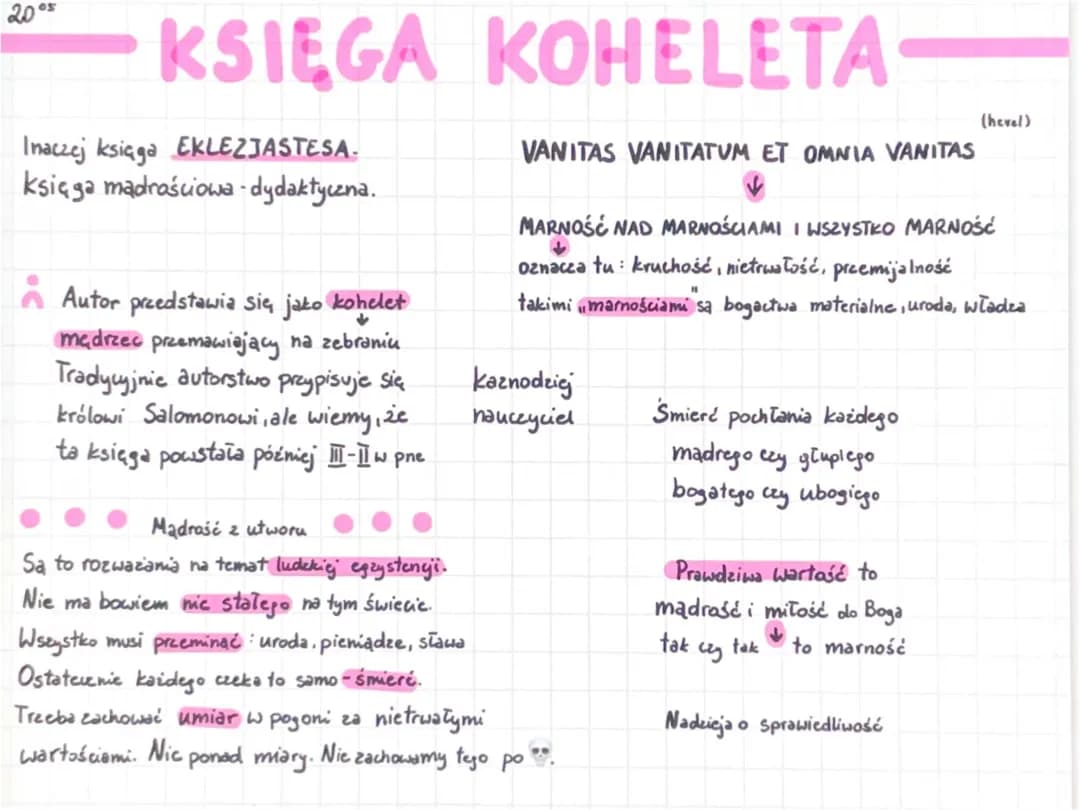 20⁰⁵
KSIĘGA KOHELETA
Inaczej księga EKLEZJASTESA.
księga mądrościowa - dydaktyczna.
Autor przedstawia się jako kohelet
↓
mędrzec przemawiający na zebraniu
Tradycyjnie autorstwo przypisuje się
królowi Salomonowi, ale wiemy, że
ta księga powstała później III-II w pne
kaznodziej
nauczyciel
Mądrość z utworu
Są to rozważania na temat ludzkiej egzystencji.
Nie ma bowiem nic stałego na tym świecie.
Wszystko musi przeminąć : uroda, pieniądze, sława
Ostatecznie każdego czeka to samo - śmierć.
Trzeba zachować umiar w pogoni za nietrwałymi
wartościami. Nic ponad miary. Nie zachowamy tego po 💀.
(hevel)
VANITAS VANITATUM ET OMNIA VANITAS
↓
MARNOŚĆ NAD MARNOŚCIAMI I WSZYSTKO MARNOŚĆ
↓
oznacza tu : kruchość, nietrwałość, przemijalność
takimi „marnościami" są bogactwa materialne, uroda, władza
Śmierć pochłania każdego
mądrego czy głupiego
bogatego czy ubogiego
Prawdziwa wartość to
mądrość i miłość do Boga
tak czy tak ↓ to marność
Nadzieja o sprawiedliwość